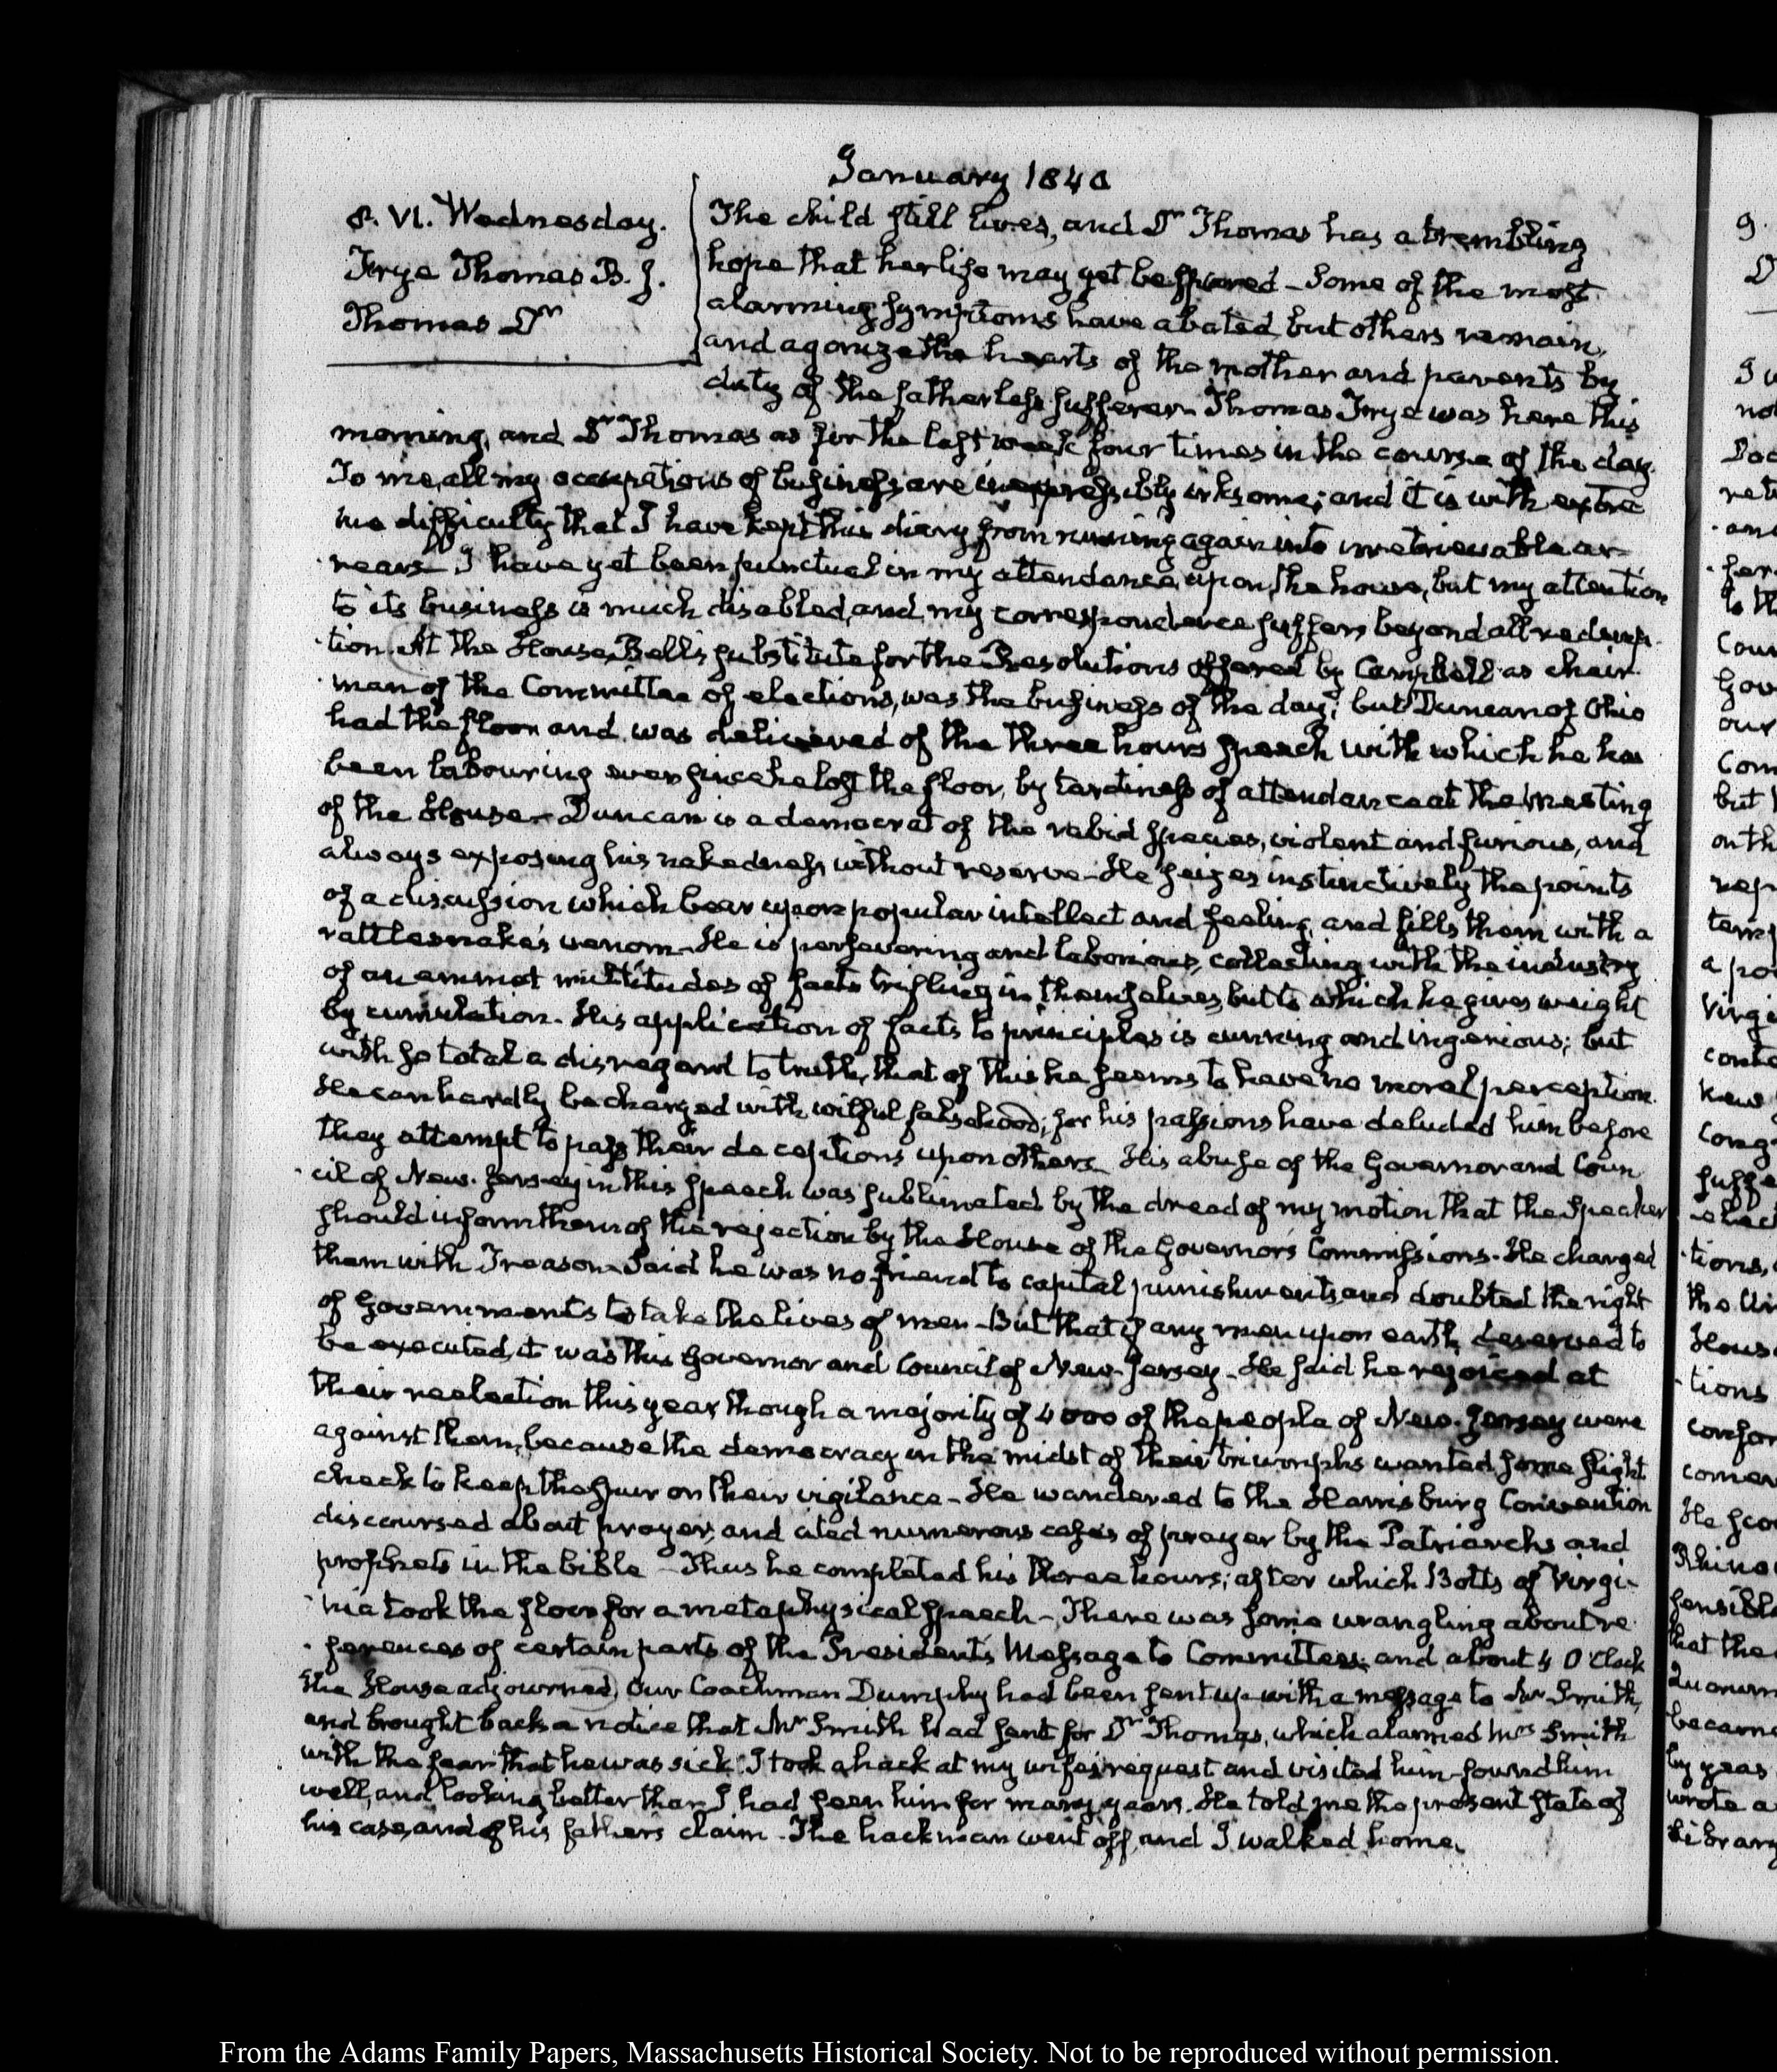 January 1840
8. VI. Wednesday.
Frye Thomas B. J.
Thomas Dr
The child still lives, and Dr Thomas has a trembling
hope that her life may yet be spared – Some of the most
alarming symptoms have abated, but others remain,
and agonize the hearts of the mother and parents by
duty of the fatherless sufferer – Thomas Frye was here this
morning, and Dr Thomas as for the last week four times in the course of the day.
To me, all my occupations of business are inexpressibly irksome; and it is with extre
me difficulty that I have kept this diary from running again into irretrievable ar-
rears – I have yet been punctual in my attendance upon, the house, but my attention
to its business is much disabled, and my correspondence suffers beyond all redemp-
tion. At the House, Bell's substitute for the Resolutions offered by Campbell as chair-
man of the Committee of elections, was the business of the day; but Duncan of Ohio
had the floor and was delivered of the three hours speech with which he has
been labouring ever since he lost the floor, by tardiness of attendance at the meeting
of the House – Duncan is a democrat of the rabid species, violent and furious, and
always exposing his nakedness without reserve – He seizes instinctively the points
of a discussion which bear upon popular intellect and feeling, and fills them with a
rattlesnake's venom – He is persevering and laborious, collecting with the industry
of an emmet multitudes of facts trifling in themselves, but to which he gives weight
by cumulation. His application of facts to principles is cunning and ingenious; but
with so total a disregard to truth, that of this he seems to have no moral perception.
He can hardly be charged with wilful falsehood; for his passions have deluded him before
they attempt to pass their deceptions upon others – His abuse of the Governor and Coun
cil of New-Jersey in this speech was sublimated by the dread of my motion that the Speaker
should inform them of the rejection by the House of the Governor's Commissions. He charged
them with Treason – Said he was no friend to capital punishments, and doubted the right
of Governments to take the lives of men – But that if any men upon earth, deserved to
be executed, it was this Governor and Council of New-Jersey – He said he rejoiced at
their reelection this year, though a majority of 4000 of the people of New-Jersey were
against them, because the democracy in the midst of their triumphs wanted some slight
check to keep the spur on their vigilance – He wandered to the Harrisburg Convention
discoursed about prayer, and cited numerous cases of prayer by the Patriarchs and
prophets in the bible – Thus he completed his three hours; after which Botts of Virgi-
nia took the floor for a metaphysical speech – There was some wrangling about re-
ferences of certain parts of the President's Message to Committees; and about 4 O'Clock
the House adjourned, Our Coachman Dumphy had been sent up with a message to Mr Smith,
and brought back a notice that Mr Smith had sent for Dr Thomas, which alarmed Mrs Smith
with the fear that he was sick. I took a hack at my wife's request and visited him – found him
well, and looking better than I had seen him for many years. He told me the present state of
his case, and of his father's claim. The hackman went off, and I walked home.
From the Adams Family Papers, Massachusetts Historical Society. Not to be reproduced without permission.